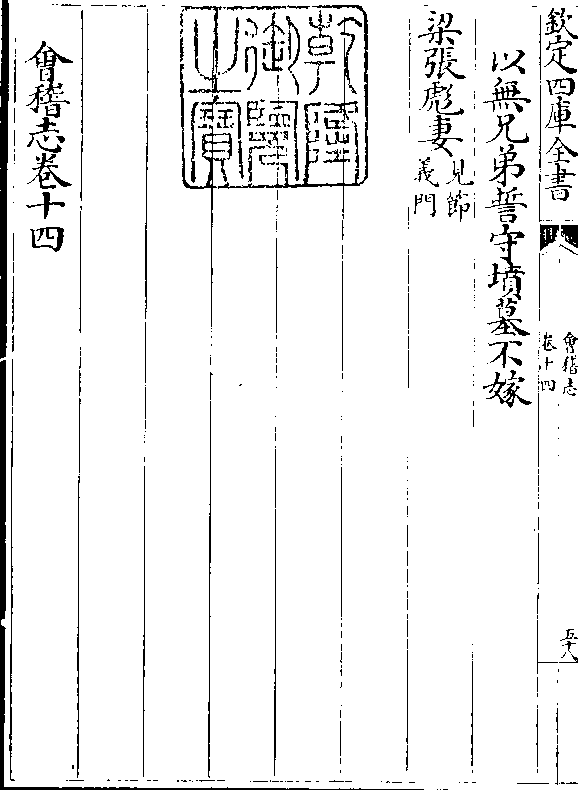 欽定四庫全書
會稽志
卷十四
五十八
以無兄弟誓守墳墓不嫁
梁張彪妻見節
義門
乾隆
御覽
之寶
會稽志卷十四